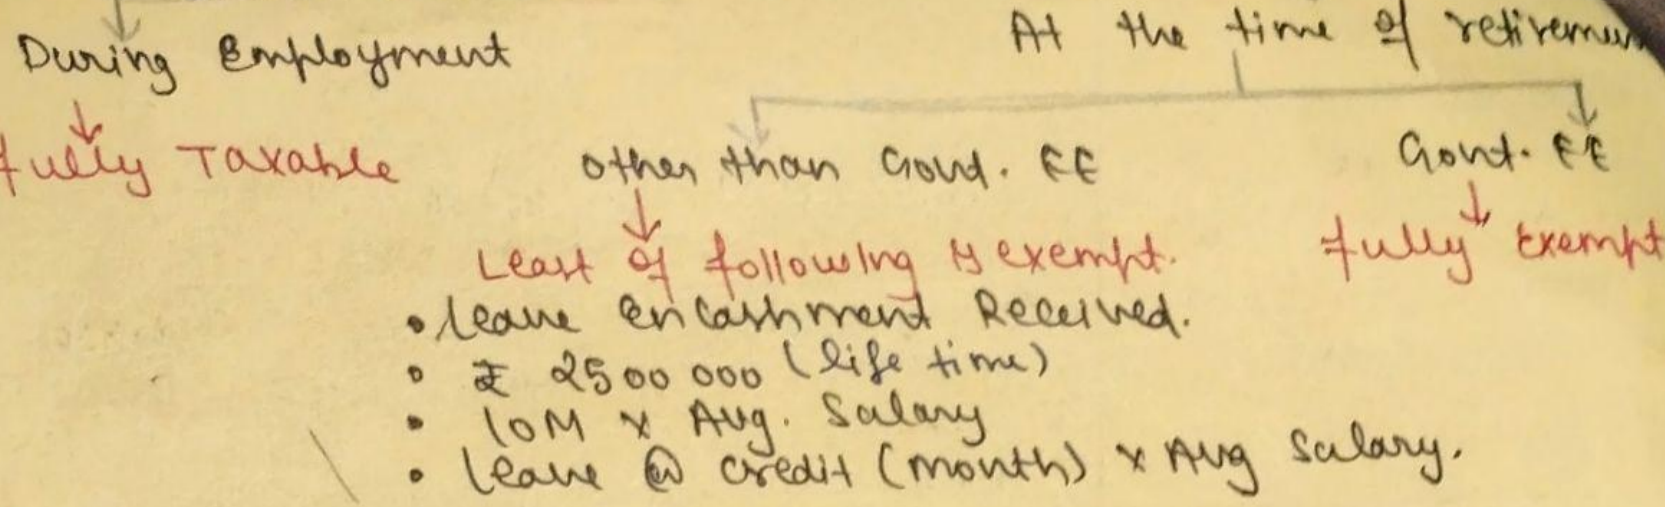 During Employment
At the time of retiremen
fully Taxable
other than Govt. EE
Govt. EE
Least of following is exempt.
fully Exempt
• leave encashment Received.
• ₹ 2500 000 (life time)
• 10M x Avg. Salary
• leave @ credit (month) x Avg Salary.